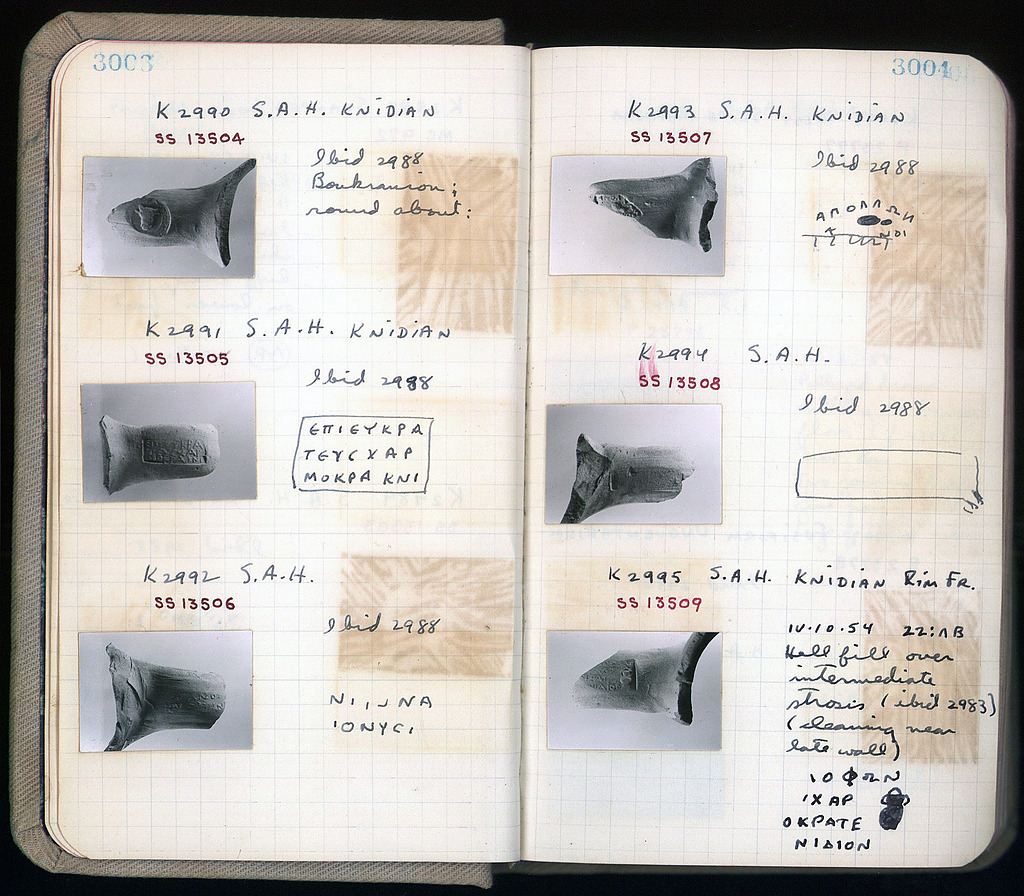 3003
K2990 S.A.H. KNIDIAN
SS 13504
Ibid 2988
Boukranion;
round about:
K2991 S.A.H. KNIDIAN
SS 13505
Ibid 2988
ΕΠΙΕΥΚΡΑ
ΤΕΥC ΧΑΡ
ΜΟΚΡΑ ΚΝΙ
K2992 S.A.H.
SS 13506
Ibid 2988
ΙΟΝΥCΙ
3004
K2993 S.A.H. KNIDIAN
SS 13507
Ibid 2988
ΑΠΟΛΛΩΝ
K2994 S.A.H.
SS 13508
Ibid 2988
K2995 S.A.H. KNIDIAN RIM FR.
SS 13509
IV.10.54 22:ΛΒ
Hall fill over
intermediate
strosis (ibid 2983)
(cleaning near
late wall)
ΙΟΦΩΝ
ΙΧΑΡ
ΟΚΡΑΤΕ
ΝΙΔΙΟΝ